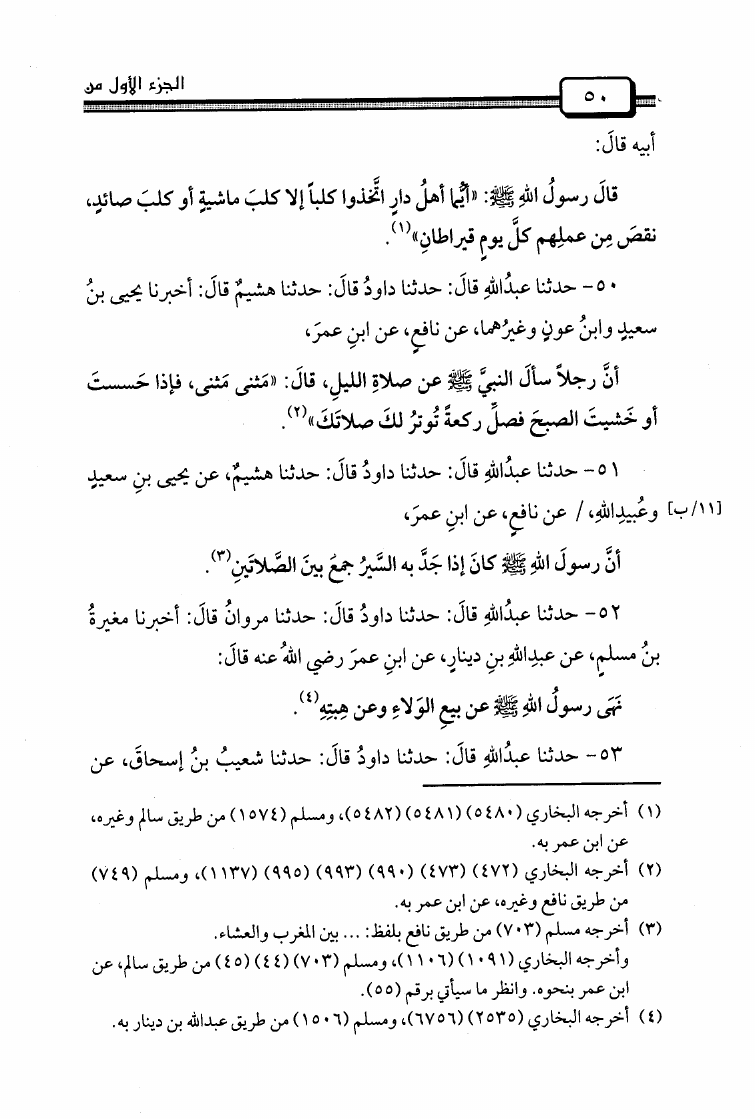 الجزء الأول من
٥٠
أبيه قالَ:
قالَ رسولُ اللهِ ﷺ: «أيُّما أهلُ دارٍ اتَّخذوا كلباً إلا كلبَ ماشيةٍ أو كلبَ صائدٍ،
نقصَ مِن عملِهم كلَّ يومٍ قيراطانِ»(١).
٥٠- حدثنا عبدُاللهِ قالَ: حدثنا داودُ قالَ: حدثنا هشيمٌ قالَ: أخبرنا يحيى بنُ
سعيدٍ وابنُ عونٍ وغيرُهما، عن نافعٍ، عن ابنِ عمرَ،
أنَّ رجلاً سألَ النبيَّ ﷺ عن صلاةِ الليلِ، قالَ: «مَثنى مَثنى، فإذا حَسستَ
أو خَشيتَ الصبحَ فصلِّ ركعةً تُوترُ لكَ صلاتَكَ»(٢).
٥١- حدثنا عبدُاللهِ قالَ: حدثنا داودُ قالَ: حدثنا هشيمٌ، عن يحيى بنِ سعيدٍ
[١١/ب] وعُبيدِاللهِ، / عن نافعٍ، عن ابنِ عمرَ،
أنَّ رسولَ اللهِ ﷺ كانَ إذا جَدَّ به السَّيرُ جمعَ بينَ الصَّلاتَينِ(٣).
٥٢- حدثنا عبدُاللهِ قالَ: حدثنا داودُ قالَ: حدثنا مروانُ قالَ: أخبرنا مغيرةُ
بنُ مسلمٍ، عن عبدِاللهِ بنِ دينارٍ، عن ابنِ عمرَ رضي اللهُ عنه قالَ:
نَهَى رسولُ اللهِ ﷺ عن بيعِ الوَلاءِ وعن هِبتِهِ(٤).
٥٣- حدثنا عبدُاللهِ قالَ: حدثنا داودُ قالَ: حدثنا شعيبُ بنُ إسحاقَ، عن
(١) أخرجه البخاري (٥٤٨٠) (٥٤٨١) (٥٤٨٢)، ومسلم (١٥٧٤) من طريق سالم وغيره،
عن ابن عمر به.
(٢) أخرجه البخاري (٤٧٢) (٤٧٣) (٩٩٠) (٩٩٣) (٩٩٥) (١١٣٧)، ومسلم (٧٤٩)
من طريق نافع وغيره، عن ابن عمر به.
(٣) أخرجه مسلم (٧٠٣) من طريق نافع بلفظ: ... بين المغرب والعشاء.
وأخرجه البخاري (١٠٩١) (١١٠٦)، ومسلم (٧٠٣) (٤٤) (٤٥) من طريق سالم، عن
ابن عمر بنحوه. وانظر ما سيأتي برقم (٥٥).
(٤) أخرجه البخاري (٢٥٣٥) (٦٧٥٦)، ومسلم (١٥٠٦) من طريق عبدالله بن دينار به.